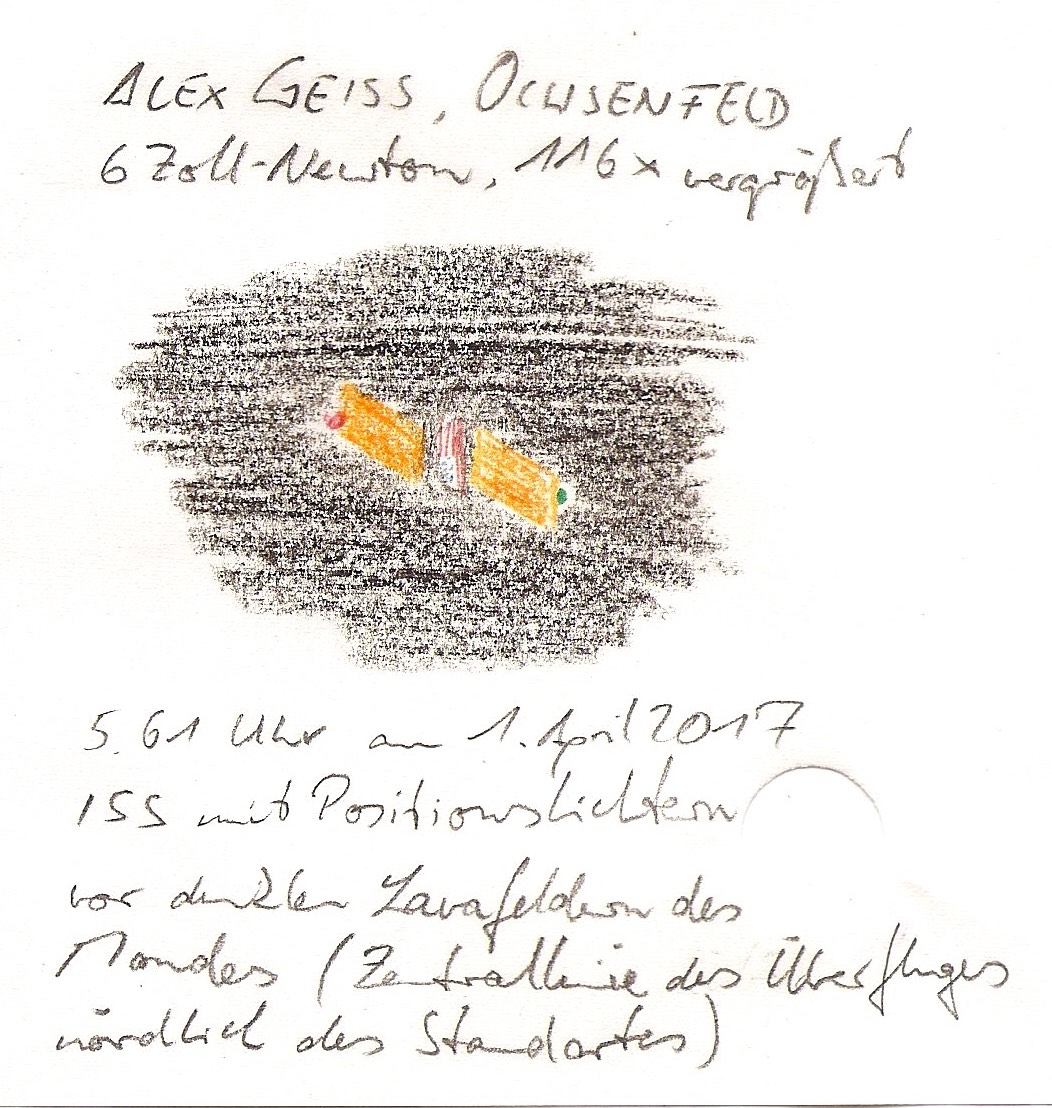 ALEX GEISS, OCHSENFELD
6 Zoll-Newton, 116x vergrößert
5.61 Uhr am 1. April 2017
ISS mit Positionslichtern
vor dunklen Lavafeldern des
Mondes (Zentrallinie des Überfluges
nördlich des Standortes)